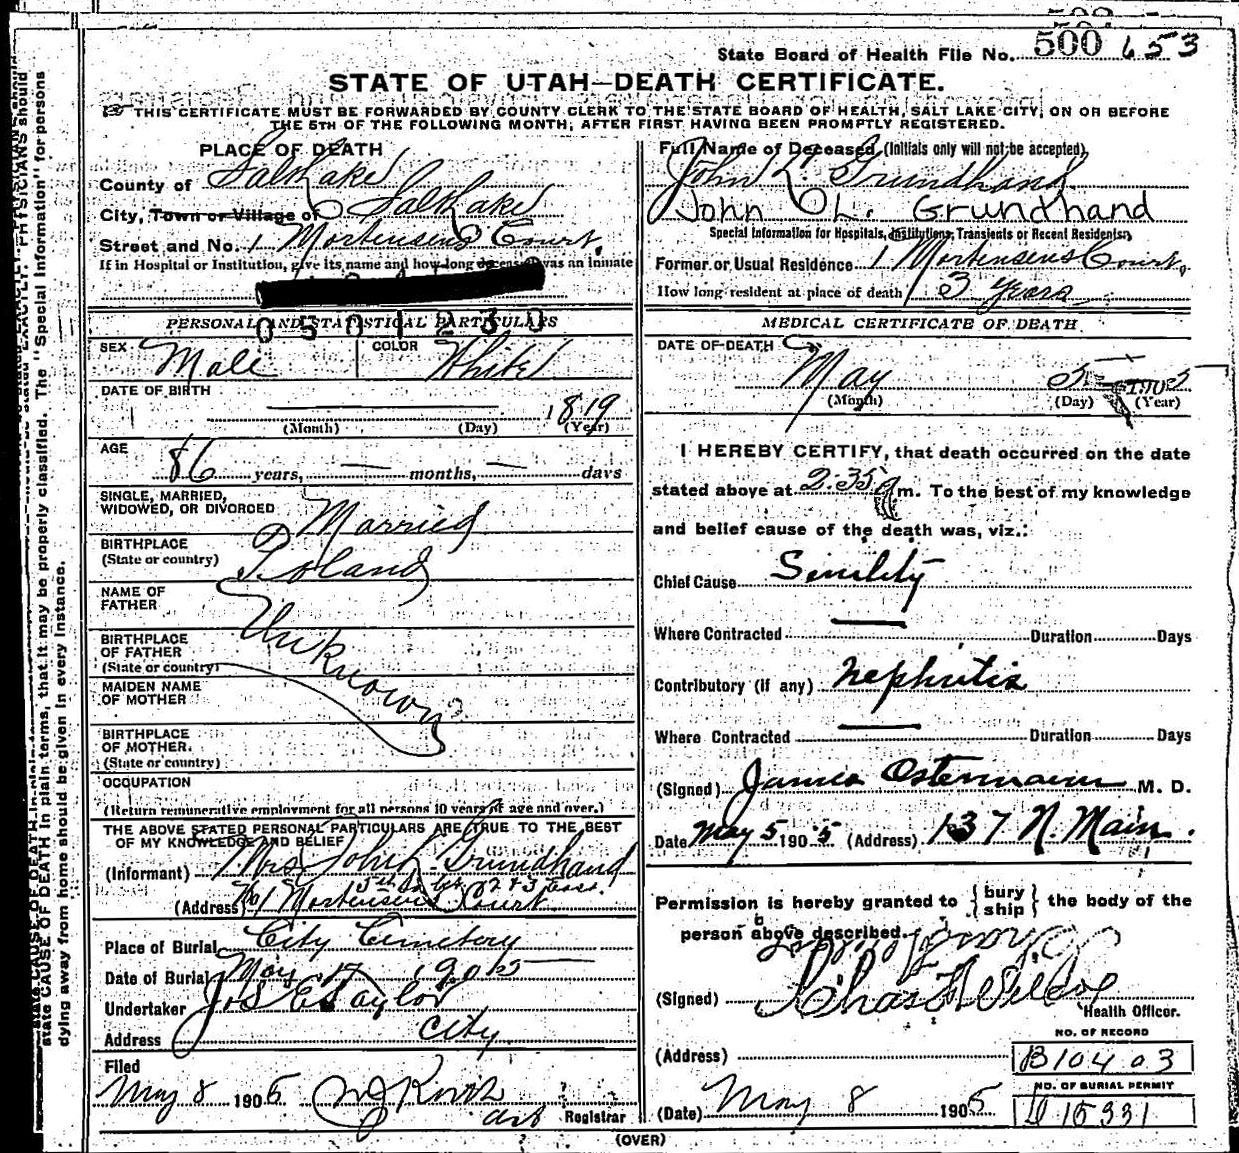 State Board of Health File No. 500 653
STATE OF UTAH—DEATH CERTIFICATE.
THIS CERTIFICATE MUST BE FORWARDED BY COUNTY CLERK TO THE STATE BOARD OF HEALTH, SALT LAKE CITY, ON OR BEFORE
THE 5TH OF THE FOLLOWING MONTH, AFTER FIRST HAVING BEEN PROMPTLY REGISTERED.
PLACE OF DEATH
County of Salt Lake
City, Town or Village of Salt Lake
Street and No. 1 Mortensens Court.
If in Hospital or Institution, give its name and how long deceased was an inmate
0501230
PERSONAL AND STATISTICAL PARTICULARS
SEX Male COLOR White
DATE OF BIRTH 1819
(Month) (Day) (Year)
AGE 86 years, — months, — days
SINGLE, MARRIED,
WIDOWED, OR DIVORCED Married
BIRTHPLACE
(State or country) Poland
NAME OF
FATHER Unknown
BIRTHPLACE
OF FATHER
(State or country)
MAIDEN NAME
OF MOTHER
BIRTHPLACE
OF MOTHER
(State or country)
OCCUPATION
(Return remunerative employment for all persons 10 years of age and over.)
THE ABOVE STATED PERSONAL PARTICULARS ARE TRUE TO THE BEST
OF MY KNOWLEDGE AND BELIEF
(Informant) Mrs John L Grundhand
(Address) No 1 Mortensens Court
Place of Burial City Cemetery
Date of Burial May 1905
Undertaker Jos E Taylor
Address City
Filed
May 8 1905
Registrar
Full Name of Deceased (Initials only will not be accepted)
John L. Grundhand
John L. Grundhand
Special Information for Hospitals, Institutions, Transients or Recent Residents.
Former or Usual Residence 1 Mortensens Court,
How long resident at place of death 3 years
MEDICAL CERTIFICATE OF DEATH
DATE OF DEATH
May 5 1905
(Month) (Day) (Year)
I HEREBY CERTIFY, that death occurred on the date
stated above at 2:35 m. To the best of my knowledge
and belief cause of the death was, viz.:
Chief Cause Senility
Where Contracted — Duration Days
Contributory (if any) Nephritis
Where Contracted — Duration Days
(Signed) James Ostermann M. D.
Date May 5 1905 (Address) 137 N. Main.
Permission is hereby granted to {bury ship} the body of the
person above described.
(Signed)
Health Officer.
(Address)
NO. OF RECORD
B10403
NO. OF BURIAL PERMIT
D 15331
(Date) May 8 1905
(OVER)
state CAUSE OF DEATH in plain terms, that it may be properly classified. The "Special Information" for persons
dying away from home should be given in every instance.